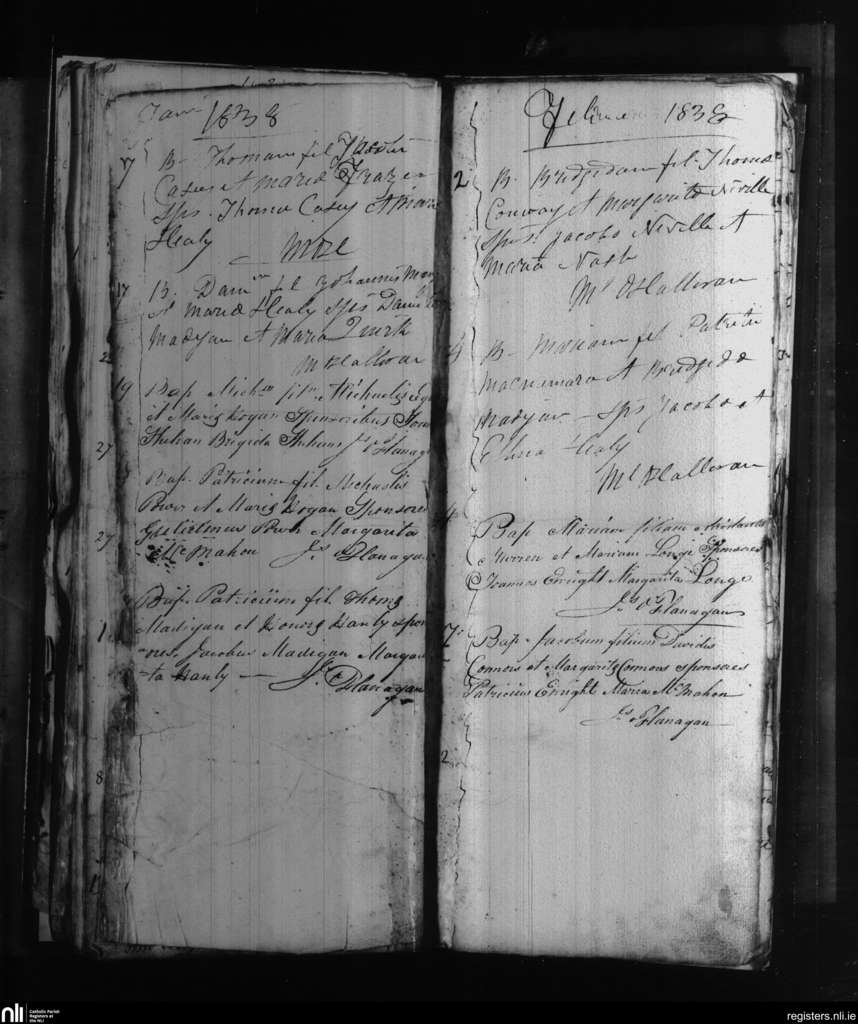 1838
B. Thomam fil
Casey et Maria
Sps. Thoma Casey et
Healy
17 B. Dan fil Johannis
et Maria Healy sps Dan
Madigan et Maria
M OHalloran
19 Bap. Mich fil Michaelis
et Maria Hogan Sponsoribus
Shehan Brigida Shehan Js OFlanagan
27
Bap. Patricium fil. Michaelis
Power et Maria Hogan Sponsores
27 Gulielmus Power Margarita
McMahon Js. OFlanagan
Bap. Patricium fil. Thoma
Madigan et Honora Hanly spon
1 -ores Jacobus Madigan Margari
-ta Hanly — Js. OFlanagan
8
1838
2 B. Bridgedam fil. Thoma
Conway et Margarita Neville
Sps. Jacobo Neville et
Maria Nash
Ml OHalloran
4 B. Mariam fil Patricii
Macnemara et Bridgida
Madigan — Sps Jacobo et
Healy
Ml OHalloran
4 Bap Mariam filiam
et Mariam Longe Sponsores
Joannes Enright Margarita Longe
Js OFlanagan
7 Bap. Jacobum filium Davidis
Connors et Margarita Connors sponsores
Patricius Enright Maria McMahon
Js OFlanagan
2
nli
Catholic Parish
Registers at
the NLI
registers.nli.ie